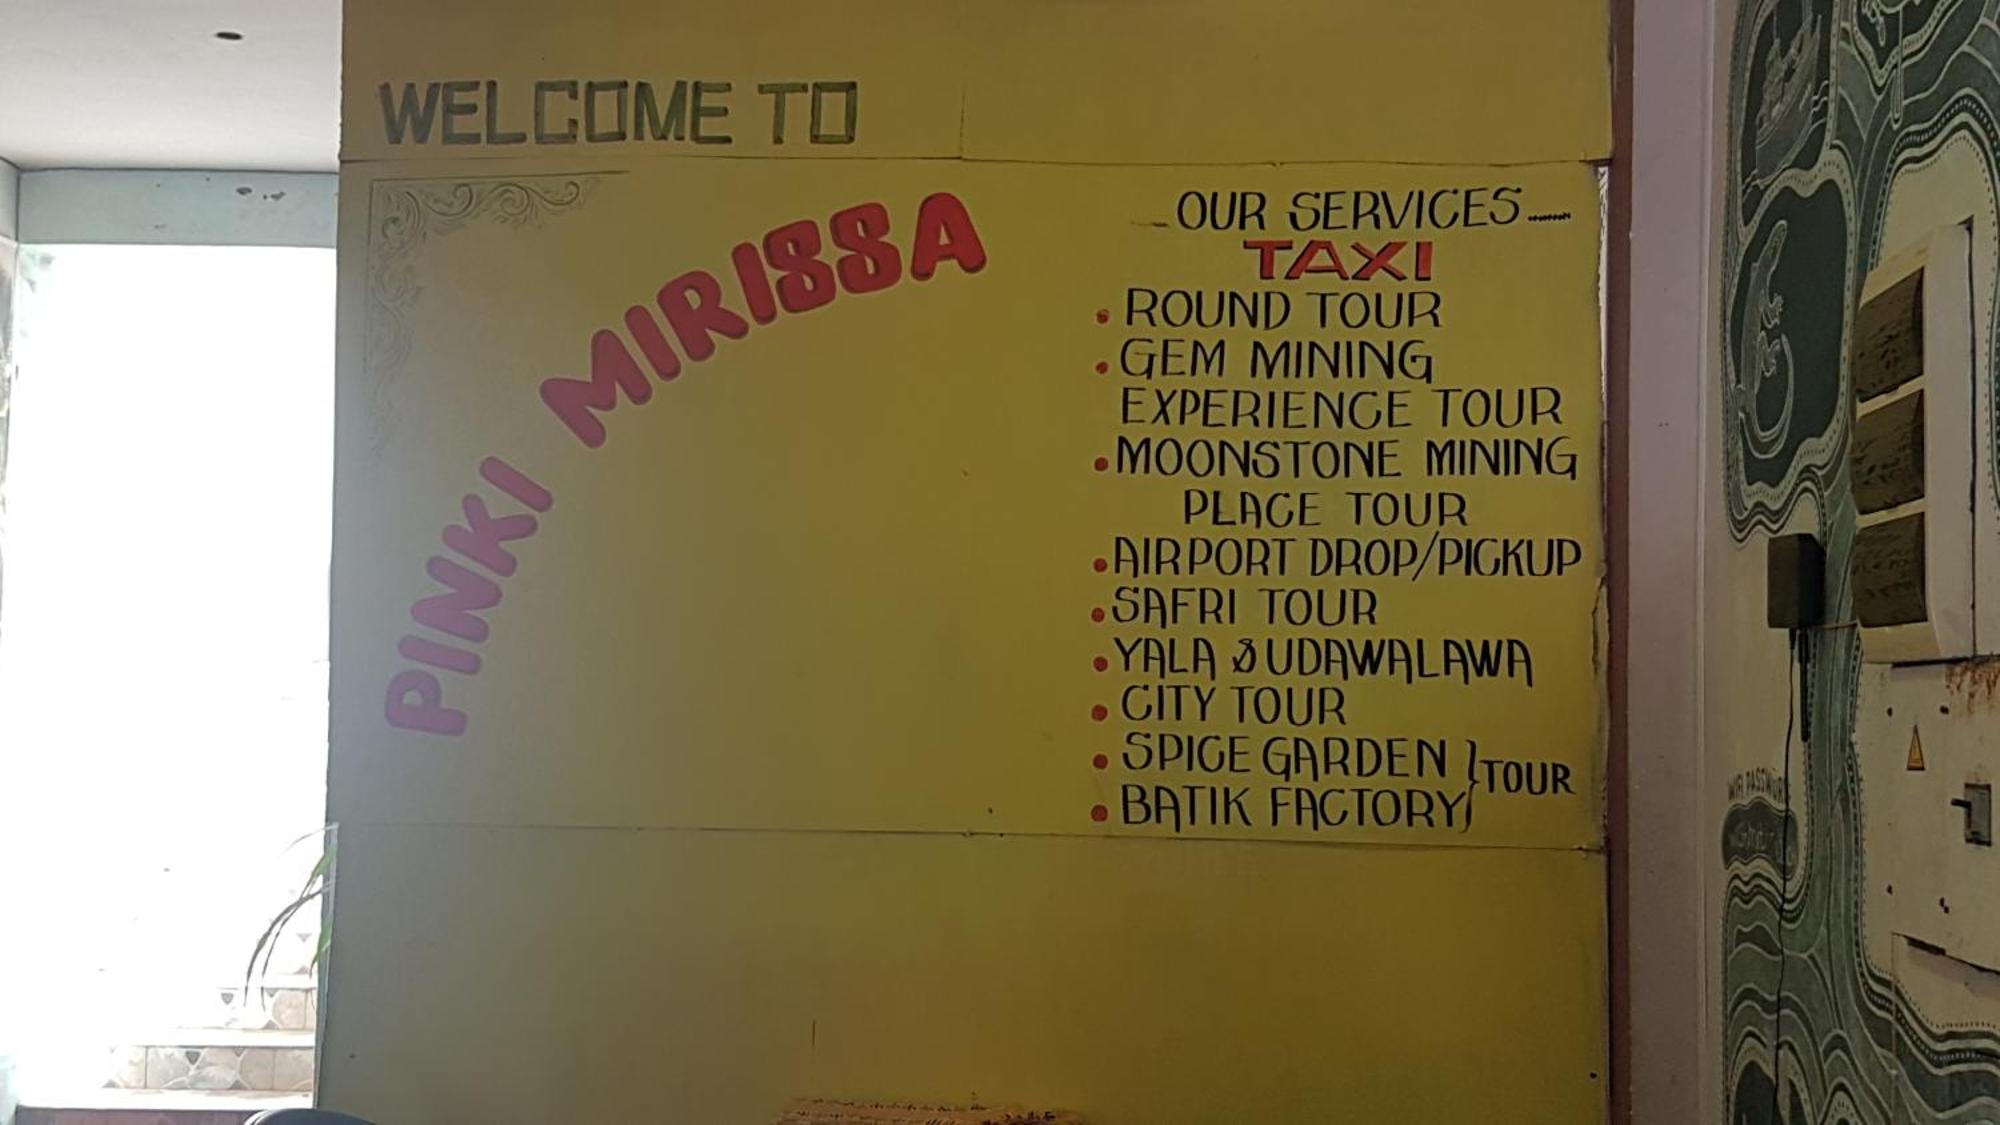 WELCOME TO
PINKI MIRISSA
OUR SERVICES........
TAXI
• ROUND TOUR
• GEM MINING
EXPERIENCE TOUR
• MOONSTONE MINING
PLACE TOUR
• AIRPORT DROP/PICKUP
• SAFRI TOUR
• YALA & UDAWALAWA
• CITY TOUR
• SPICE GARDEN } TOUR
• BATIK FACTORY
WIFI PASSWORD